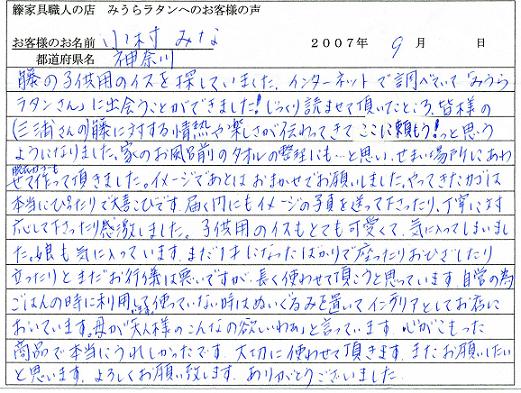 籐家具職人の店 みうらラタンへのお客様の声
お客様のお名前 小村 みな 2007年 9月 日
都道府県名 神奈川
藤の子供用のイスを探していました。インターネットで調べていて「みうら
ラタンさん」に出会うことができました!じっくり読ませて頂いたところ、皆様の
(三浦さんの)藤に対する情熱や楽しさが伝わってきて ここに頼もう!っと思う
ようになりました。家のお風呂前のタオルの整理にも…と思い、せまい場所にあわ
せて作って頂きました。イメージであとは おまかせでお願いしました。やってきたカゴは
本当にぴったりで大喜びです。届く間にもイメージの写真を送って下さったり、丁寧に対
応して下さったり感激しました。子供用のイスもとても可愛くて、気に入ってしまいまし
た。娘も気に入っています。まだ1才になったばかりで座ったりおひざしたり
立ったりと まだお行儀は悪いですが、長く使わせて頂こうと思っています。自営の為
ごはんの時に利用し、使っていない時はぬいぐるみを置いて インテリアとしてお店に
おいています。母が"大人様のこんなの欲しいわぁ"と言っています。心がこもった
商品で本当にうれしかったです。大切に使わせて頂きます。またお願いしたい
と思います。よろしくお願い致します。ありがとうございました。